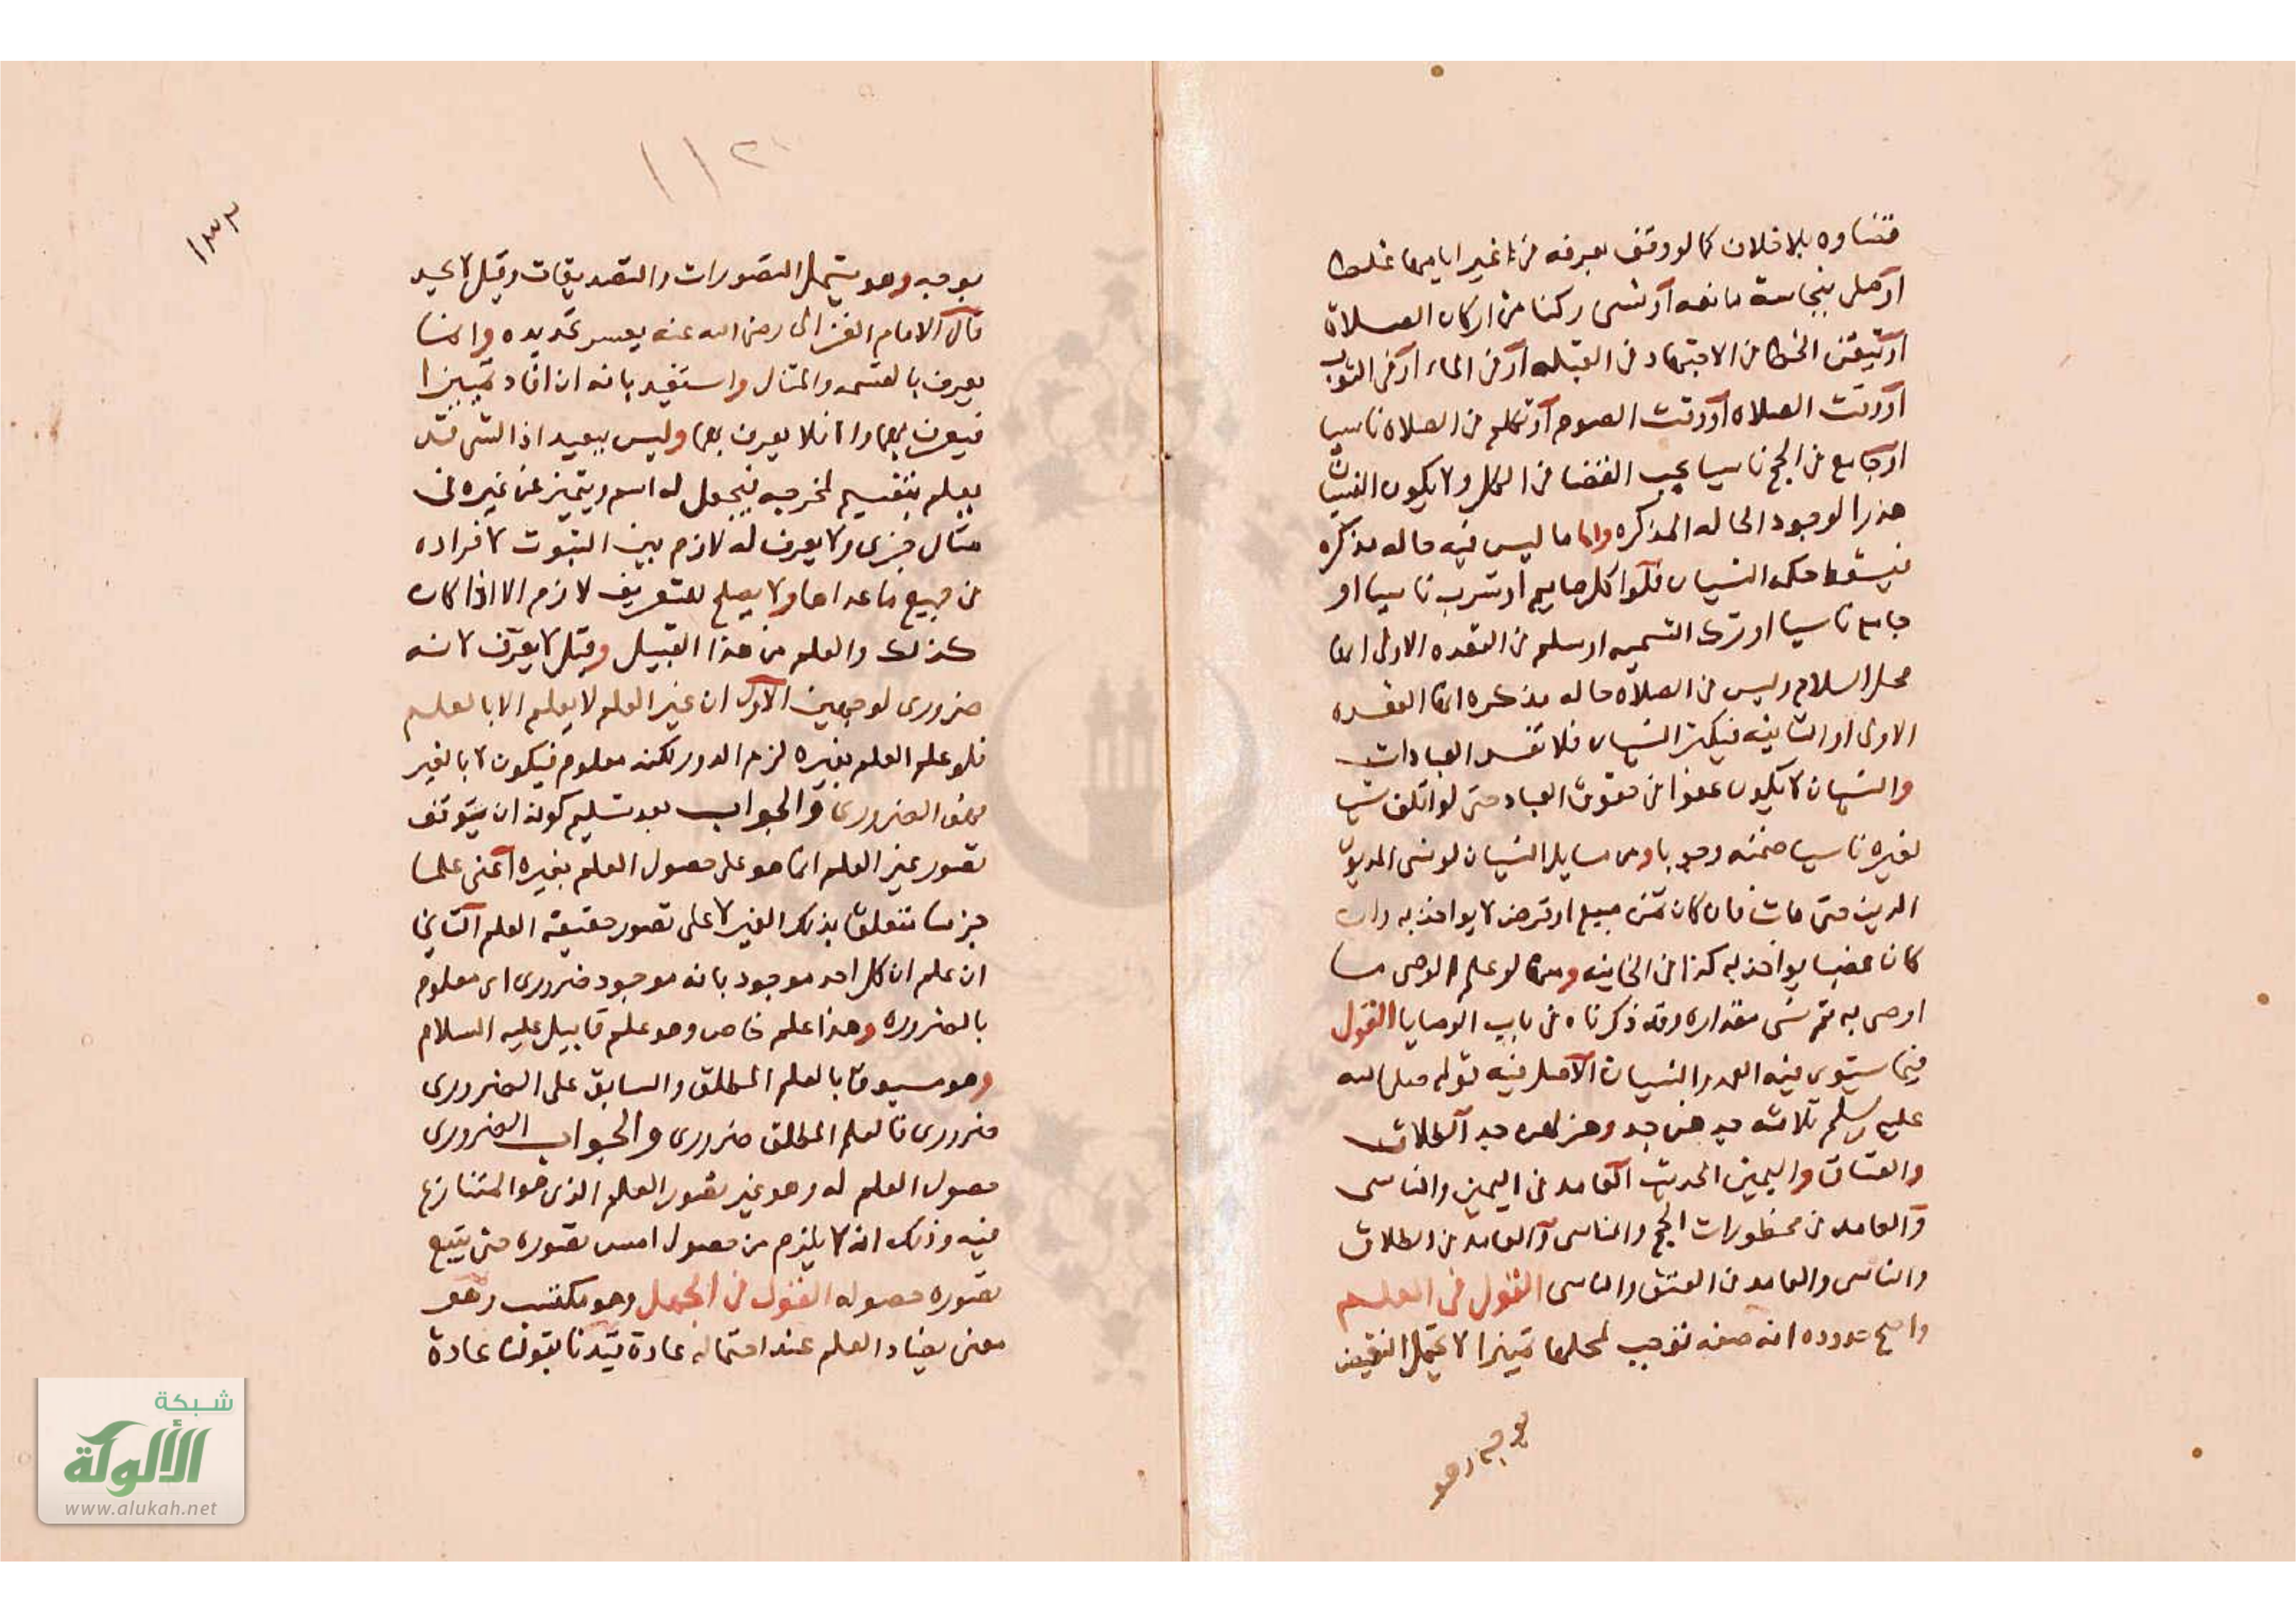 قضاوه بلا خلاف كما لو وقف بعرفه فى غير ايامها غلطا
او صلى بنجاسة مانعه او نسى ركنا من اركان الصلاة
او تيقن الخطا فى الاجتهاد فى القبله او فى الماء او فى الثوب
او وقت الصلاه او وقت الصوم او تكلم فى الصلاه ناسيا
او جامع فى الحج ناسيا يجب القضا فى الكل ولا يكون النسيان
عذرا لوجود الحاله المذكره واما ما ليس فيه حاله مذكره
فيسقط حكم النسيان فلو اكل صايم او شرب ناسيا او
جامع ناسيا او ترك التسميه او سلم فى القعده الاولى انها
محل السلام وليس فى الصلاة حاله مذكره انها القعده
الاولى او الثانيه فيكثر النسيان فلا تفسد العبادات
والنسيان لا يكون عفوا فى حقوق العباد حتى لو اتلف شيا
لغيره ناسيا ضمنه وجوبا ومن مسايل النسيان لو نسى المديون
الدين حتى مات فان كان ثمن مبيع او قرض لا يواخذ به وان
كان غصبا يواخذ به كذا فى الخانيه ومنها لو علم الوصى ما
اوصى به ثم نسى مقداره وقد ذكرناه فى باب الوصايا القول
فيما يستوى فيه العمد والنسيان الاصل فيه قوله صلى الله
عليه وسلم ثلاثه جدهن جد وهزلهن جد الطلاق
والعتاق واليمين الحديث العامد فى اليمين والناسى
والعامد فى محظورات الحج والناسى والعامد فى الطلاق
والناسى والعامد فى العتق والناسى القول فى العلم
واصح حدوده انه صفه توجب لمحلها تميزا لا يحتمل النقيض
بوجه وهو
١٣٣
بوجه وهو يشمل التصورات والتصديقات وقيل لا يحد
قال الامام الغزالى رضى الله عنه يعسر تحديده وانما
يعرف بالقسمه والمثال واستفيد بانه ان افاد تمييزا
فيعرف بهما والا فلا يعرف بهما وليس ببعيد اذ الشى قد
يعلم بتقسيم لمخرجه فيجعل له اسم ويتميز عن غيره فى
مثال جزى ولا يعرف له لازم بين الثبوت لافراده
عن جميع ما عداها ولا يصلح للتعريف لازم الا اذا كان
كذلك والعلم من هذا القبيل وقيل لا يعرف لانه
ضرورى لوجهين الاول ان غير العلم لا يعلم الا بالعلم
فلو علم العلم بغيره لزم الدور لكنه معلوم فيكون لا بالغير
وهو الضرورى والجواب بعد تسليم كونه ان يتوقف
تصور غير العلم انما هو على حصول العلم بغيره اعنى علما
جزييا متعلقا بذلك الغير لا على تصور حقيقة العلم الثانى
ان علم ان كل احد موجود بانه موجود ضرورى اى معلوم
بالضروره وهذا علم خاص وهو علم قابيل عليه السلام
وهو مسبوقا بالعلم المطلق والسابق على الضرورى
ضرورى فالعلم المطلق ضرورى والجواب الضرورى
حصول العلم له وهو غير تصور العلم الذى هو المتنازع
فيه وذلك انه لا يلزم من حصول امس تصوره حتى يتبع
تصوره حصوله القول فى الجهل وهو مكتسب وهو
معنى يضاد العلم عند احتماله عادة قيدنا بقولنا عادة
شبكة
الألولة
www.alukah.net